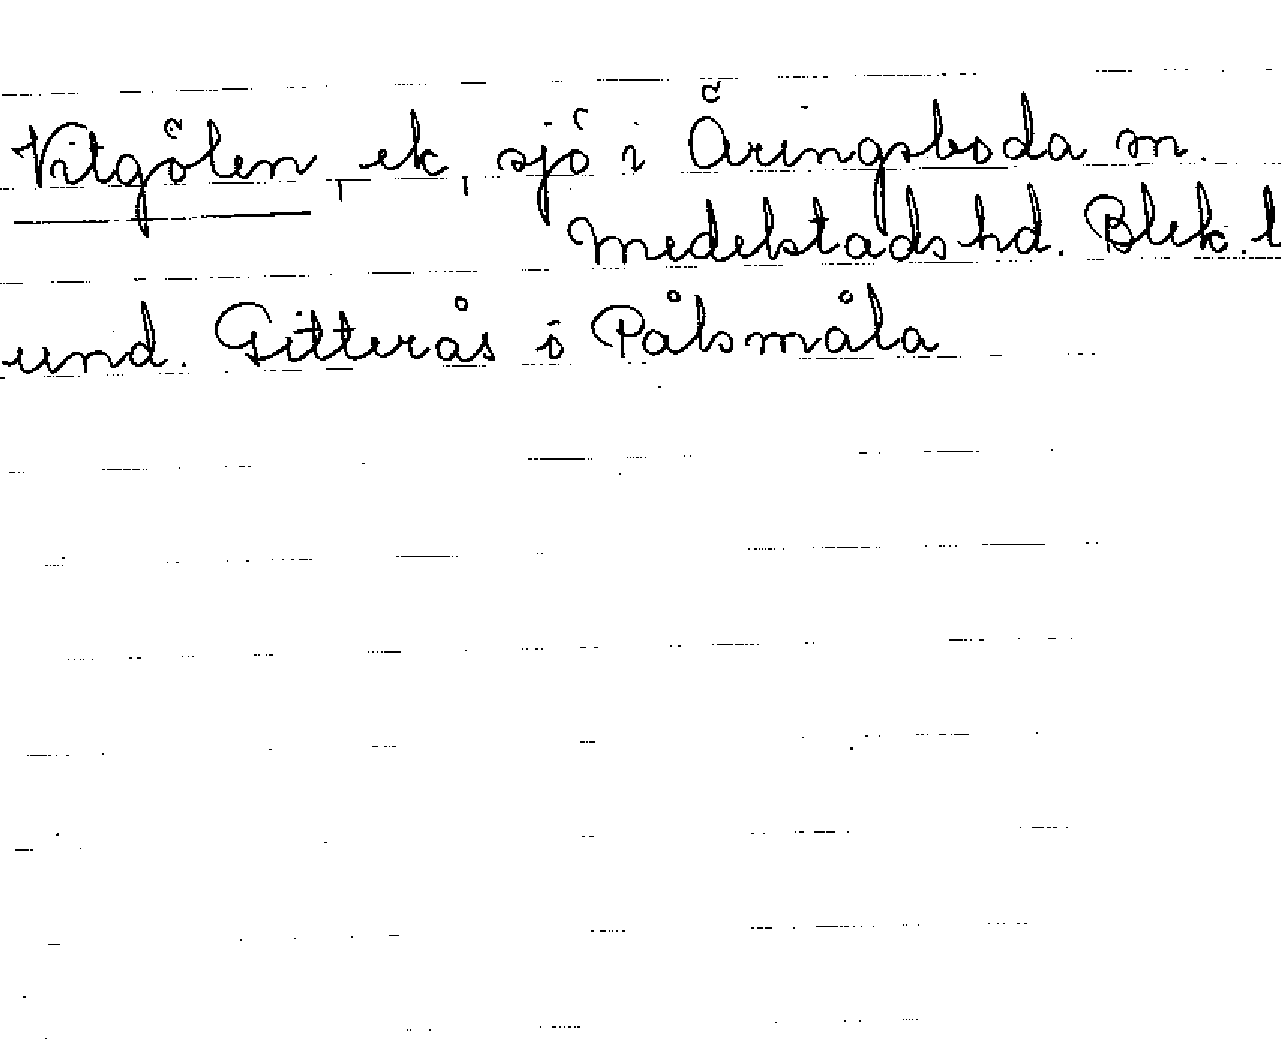 Vitgölen, ek, sjö i Äringsboda sn.
Medelstads hd. Blek. l
und. Gitterås i Pålsmåla